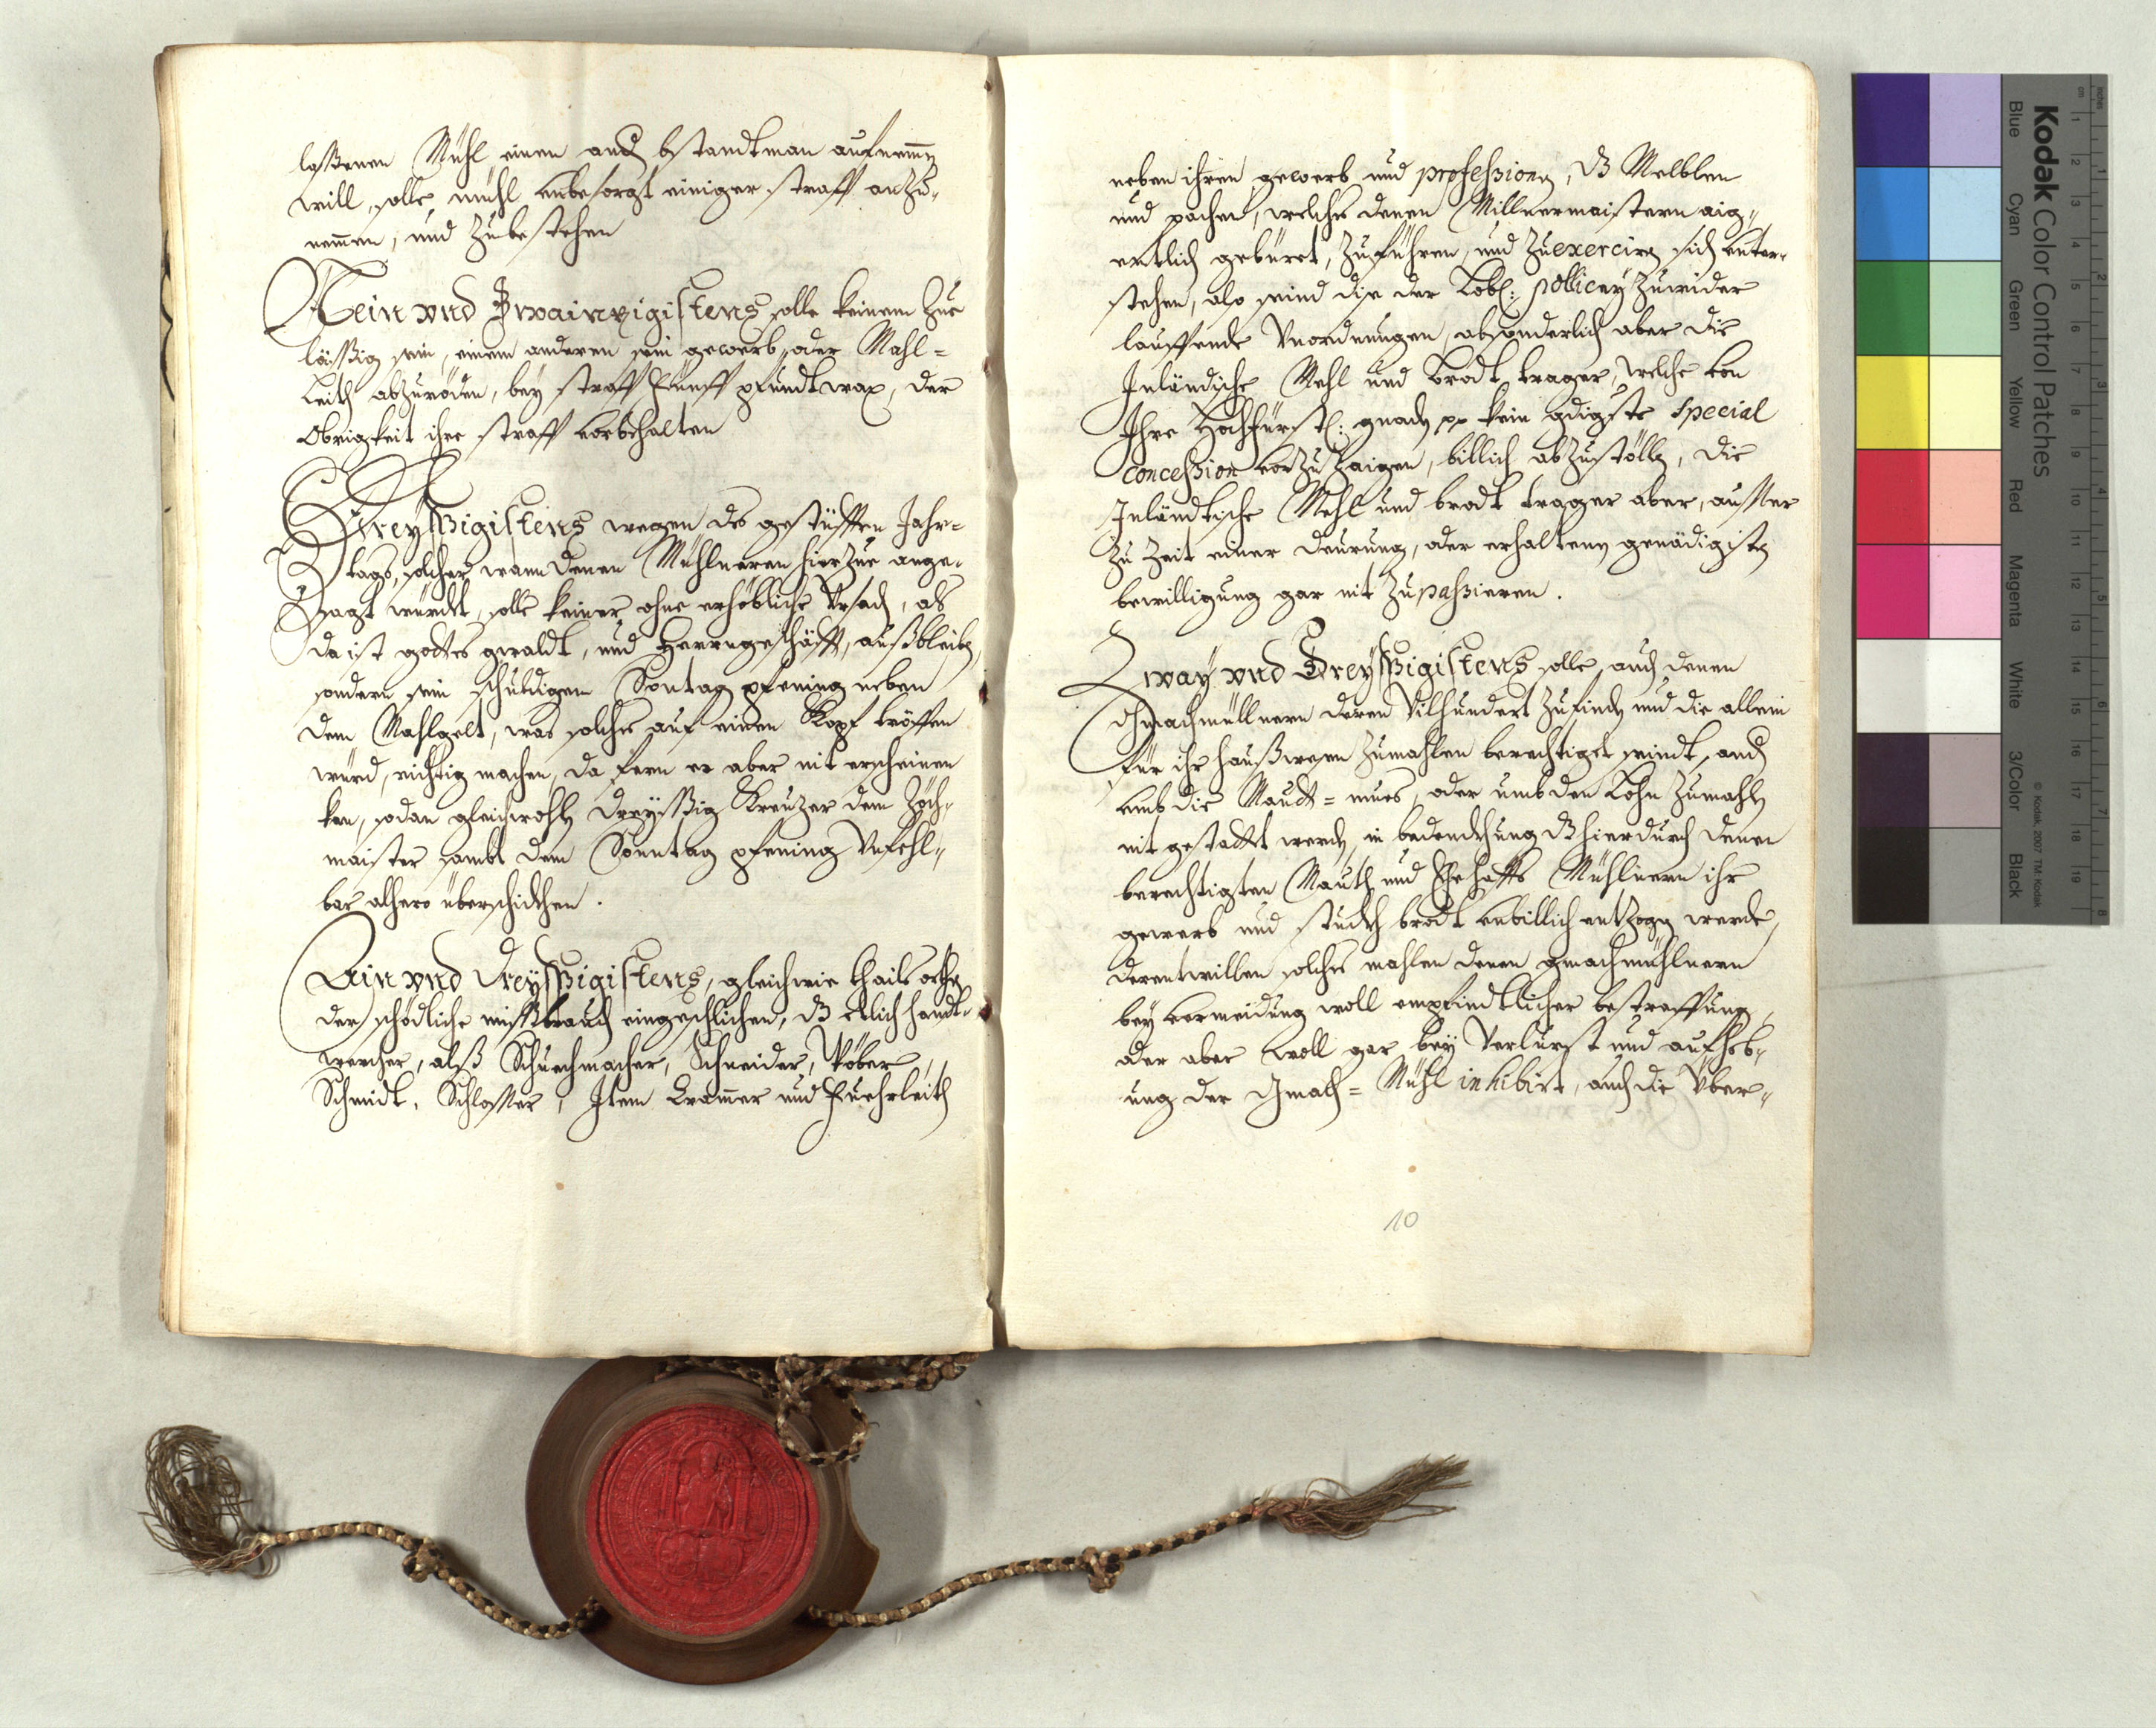 laßenen Mühl einen and bstandtman aufnemen
will, solle müßl unbesorgt einiger straff anzu-
nemmen, und zubestehen
Nein vnd Zwainzigistens solle keinem zue
läßßig sein, einem anderen sein gewerb, oder Mahl=
Leith abzuröden, bey straff Fünff pfundt wax, der
Obrigkeit ihre straff vorbehalten
Dreyßßigistens wegen des gestüfften Jahr=
tags, solcher wann denen Mühlneren hierzue ange-
sagt würdt, solle keiner ohne erhöbliche Vrsach, als
da ist gottes gwaldt, und Herrngeschäfft, außbleiben,
sondern sein schuldigen Sontag pfening neben
dem Mahlgelt, was solches auf einen Kopf tröffen
würd, richtig machen, da fern er aber nit erscheinen
kan, sodan gleichwohl dreyßßig Kreuzer dem Zöch-
maister sambt dem Sonntag pfening Vnfehl-
bar alhero überschickhen.
Ain vnd Dreyßßigistens, gleichwie thails orthen
der schödliche mißßbrauch eingeschlichen, dß etlich handt-
wercher, alß Schuechmacher, Schneider, Wöber,
Schmidt, Schlosser, Item Cramer und Fuehrleith
neben ihren gewerb und profeßionen, dß Melblen
und pachen, welches denen Millnermaistern aig-
entlich gebüret, zuführen, und zuexerciren sich unter-
stehen, also seind dise der Lobl: pollicey zuwider
lauffende Vnordnungen, absonderlich aber die
Inländische Mehl und Brodt trager, welche von
Ihro Hochfürstl: gnaden pp kein gdigste special
conceßion vorzuzaigen, billich abzustöllen, die
Inländtische Mehl und brodt trager aber, ausser
zu Zeit einer deurung, oder erhaltenen genädigisten
bewilligung gar nit zupaßieren.
Zway vnd Dreyßßigistens solle auch denen
Gmachmüllnern deren Vilhundert zufinden und die allein
für ihr haußwesen zumahlen berechtiget seindt, auch
umb die Maudt=mues, oder umb den Lohn zumahlen
nit gestattet werden, in bedenckhung dß hierdurch denen
berechtigten Mauth und Ehehaffts Mühlnern ihr
gewerb und stuckh brodt unbillich entzogen werde,
derentwillen solches mahlen denen gmachmühlnern
bey vermeidung woll empfindtlicher bestraffung,
oder aber woll gar bey Verlurst und aufheb-
ung der Gmach=Mühl inhibirt, auch die Vber-
10
Kodak Color Control Patches
Blue Cyan Green Yellow Red Magenta White 3/Color Black
© Kodak, 2007 TM: Kodak
cm 1 2 3 4 5 6 7 8 9 10 11 12 13 14 15 16 17 18 19
inches 1 2 3 4 5 6 7 8